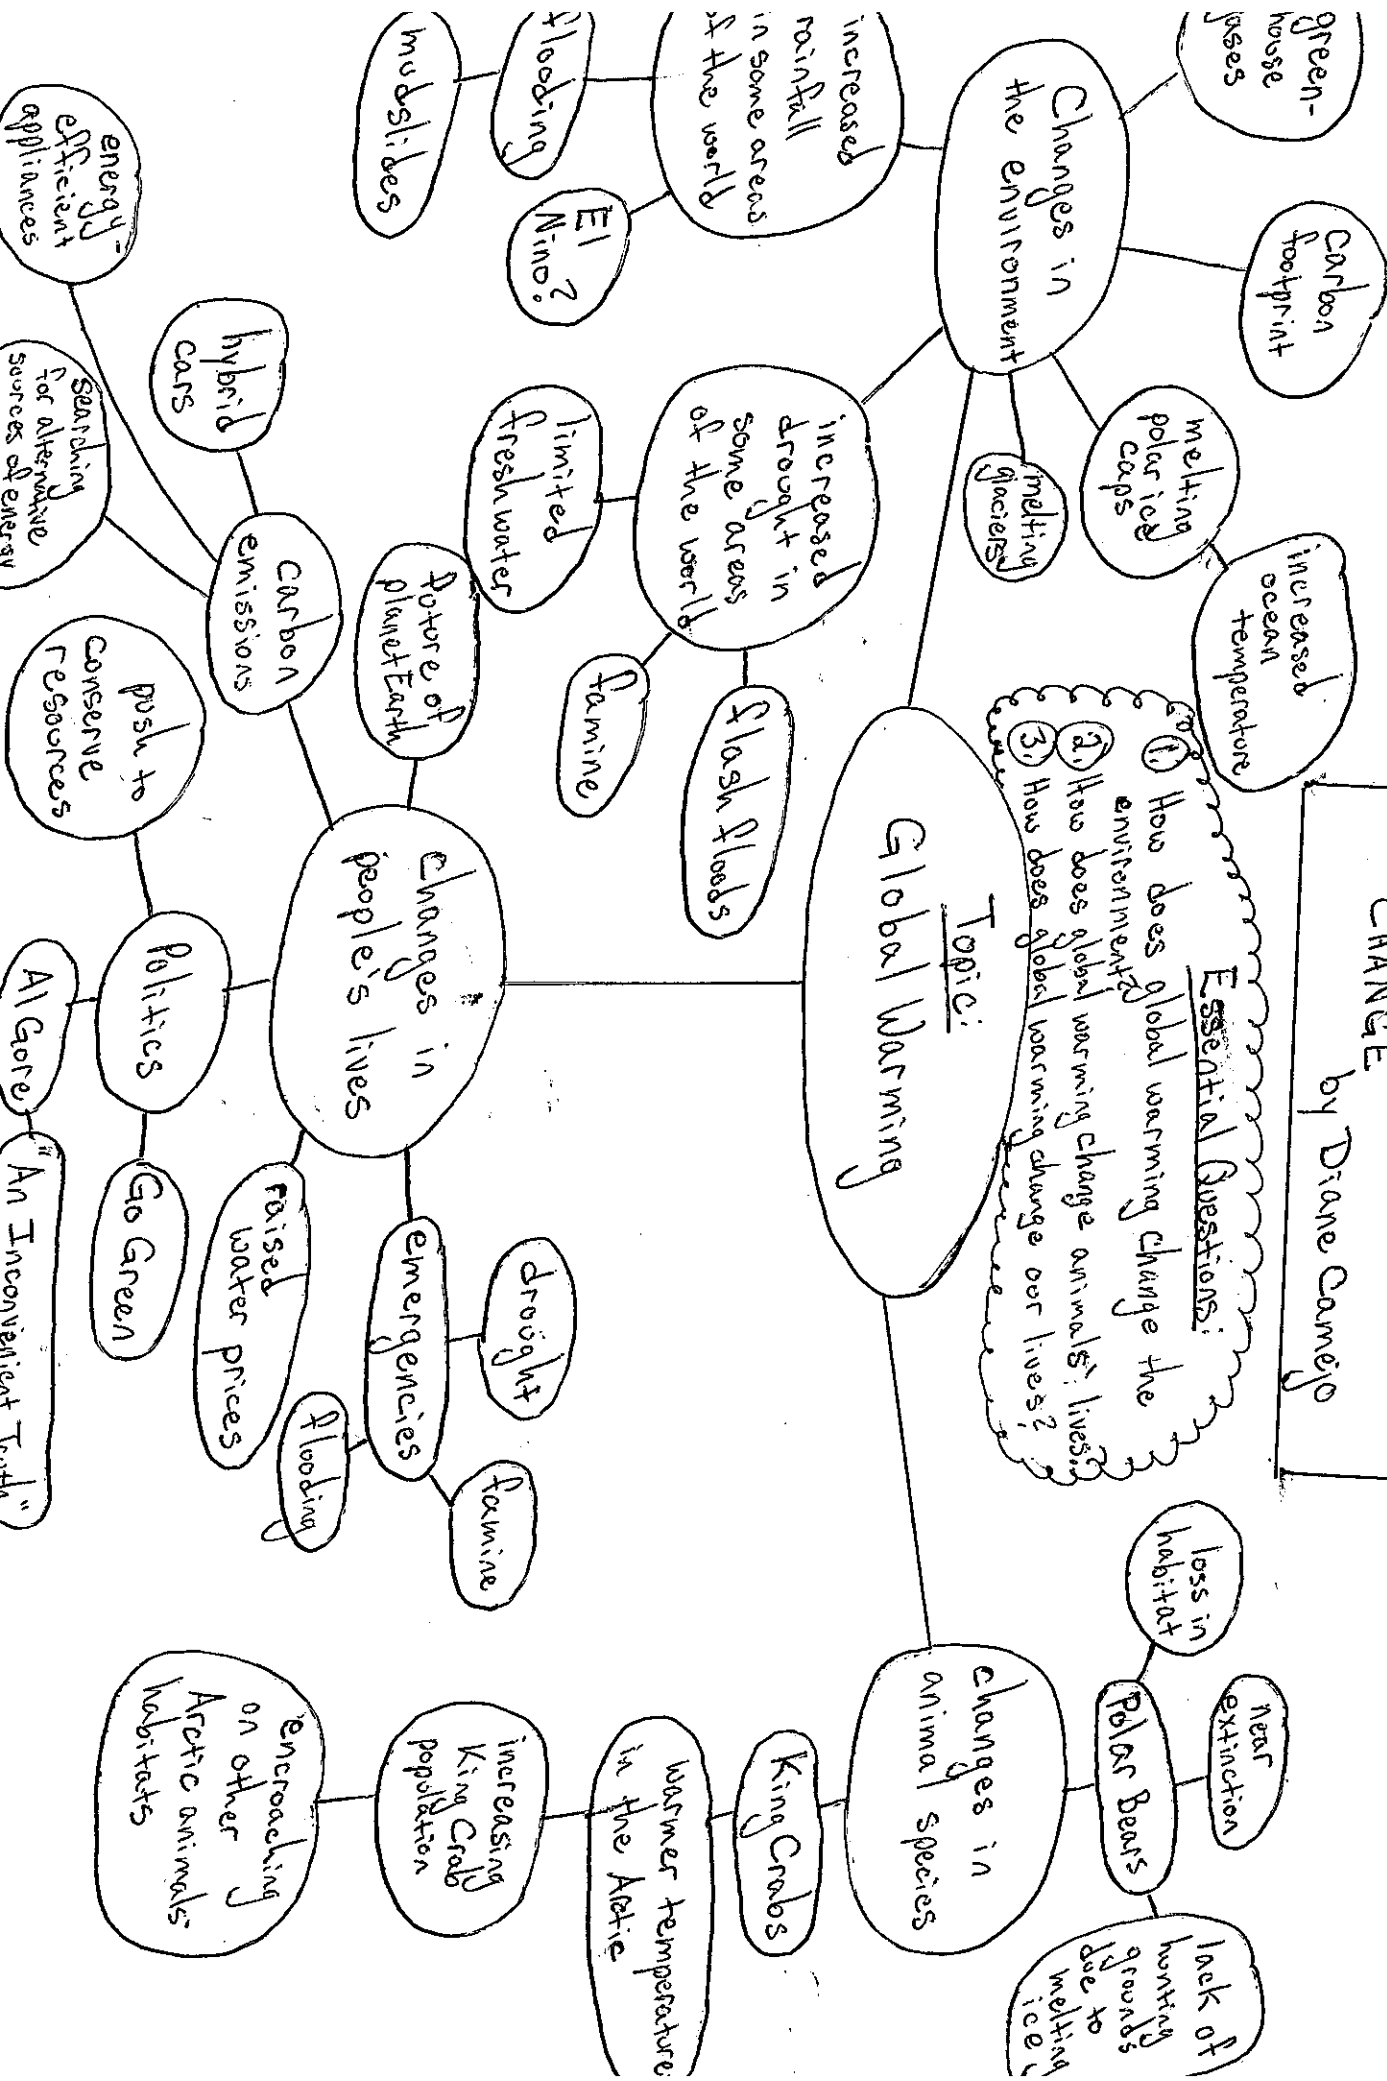 CHANGE
by Diane Camejo
Essential Questions:
1. How does global warming change the
environment?
2. How does global warming change animals' lives?
3. How does global warming change our lives?
Topic:
Global Warming
Changes in
the environment
green-
house
gases
Carbon
footprint
melting
polar ice
caps
increased
ocean
temperature
melting
glaciers
increased
rainfall
in some areas
of the world
flooding
mudslides
El
Nino?
increased
drought in
some areas
of the world
limited
fresh water
famine
flash floods
Changes in
people's lives
Future of
planet Earth
Carbon
emissions
hybrid
cars
energy-
efficient
appliances
searching
for alternative
sources of energy
Politics
push to
conserve
resources
Al Gore
"An Inconvenient Truth"
Go Green
raised
water prices
emergencies
drought
flooding
famine
changes in
animal species
Polar Bears
loss in
habitat
near
extinction
lack of
hunting
grounds
due to
melting
ice
King Crabs
warmer temperature
in the Arctic
increasing
King Crab
population
encroaching
on other
Arctic animals'
habitats